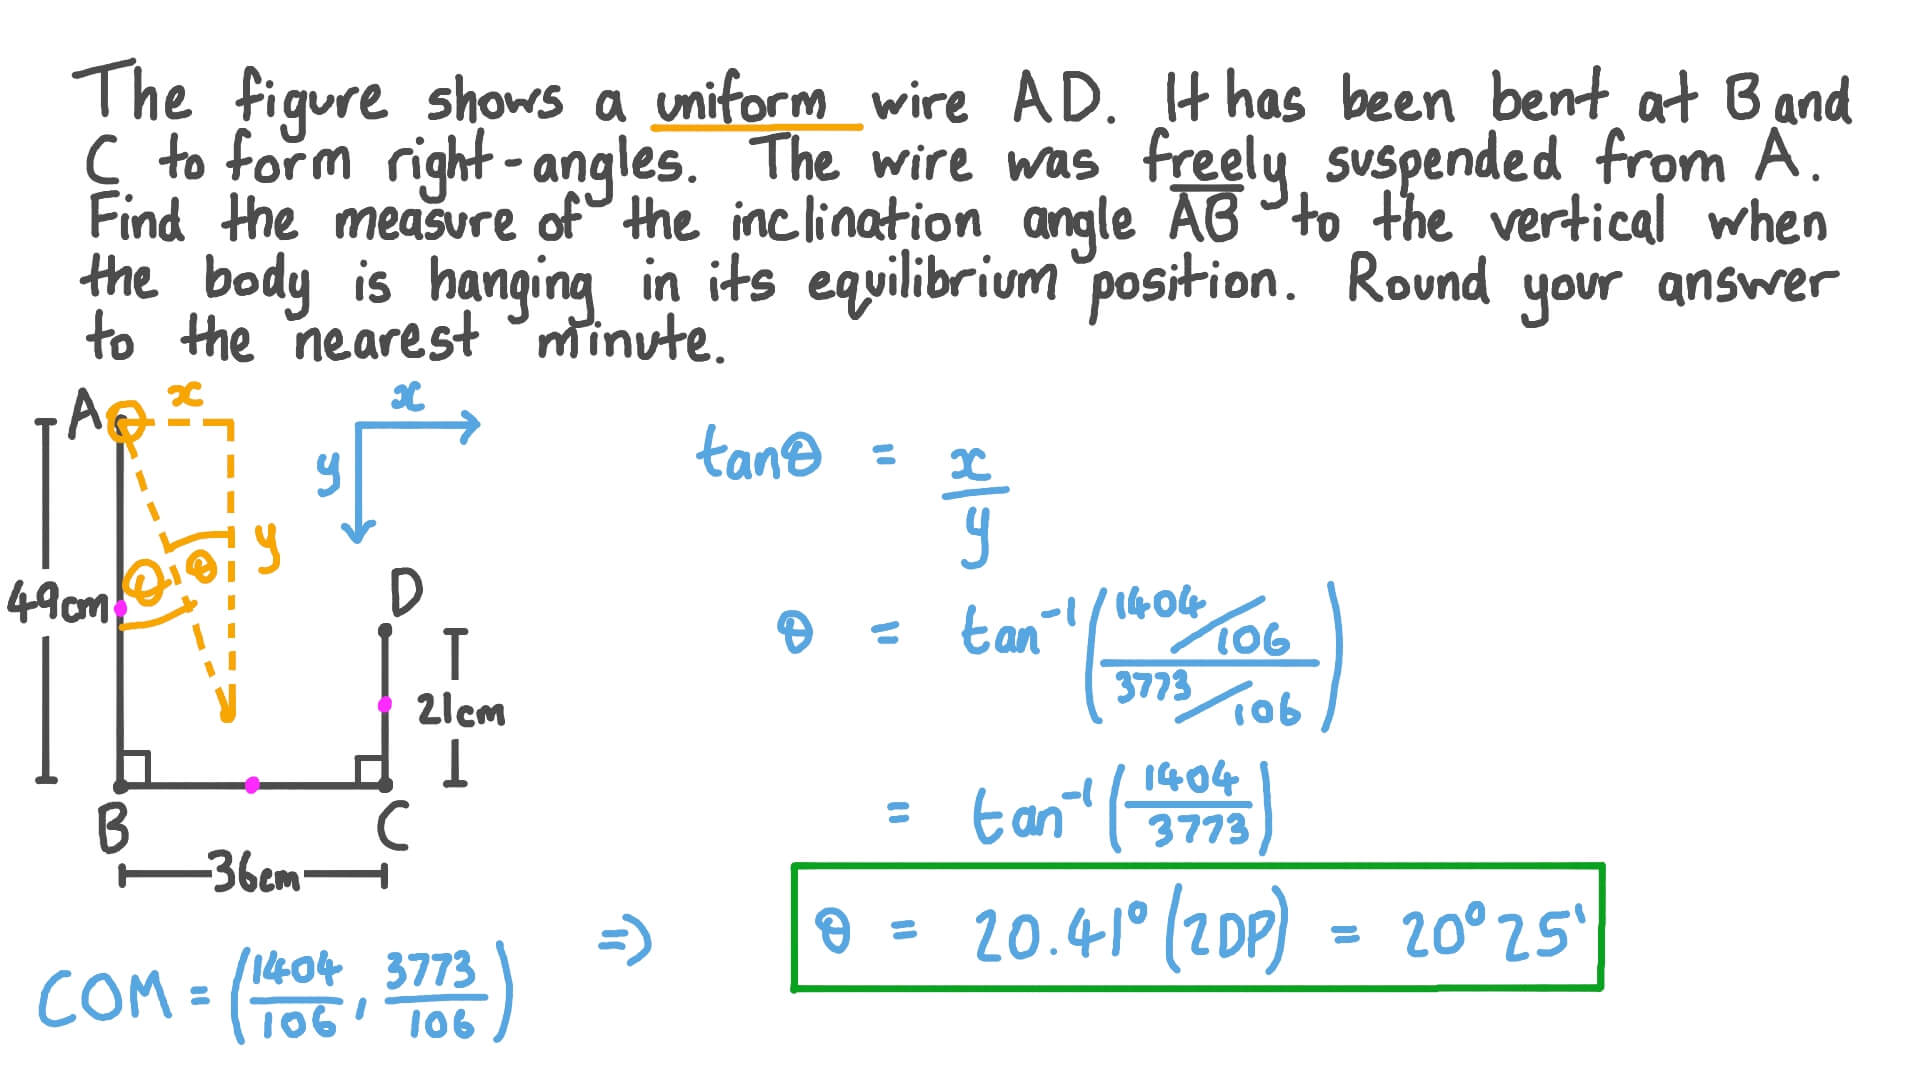 The figure shows a uniform wire AD. It has been bent at B and
C to form right-angles. The wire was freely suspended from A.
Find the measure of the inclination angle AB to the vertical when
the body is hanging in its equilibrium position. Round your answer
to the nearest minute.
A x
x
y
y
θ θ
D
49cm
21cm
B C
36cm
COM = (1404/106, 3773/106)
tanθ = x/y
θ = tan⁻¹(1404/106 / 3773/106)
= tan⁻¹(1404/3773)
⇒ θ = 20.41° (2DP) = 20°25'